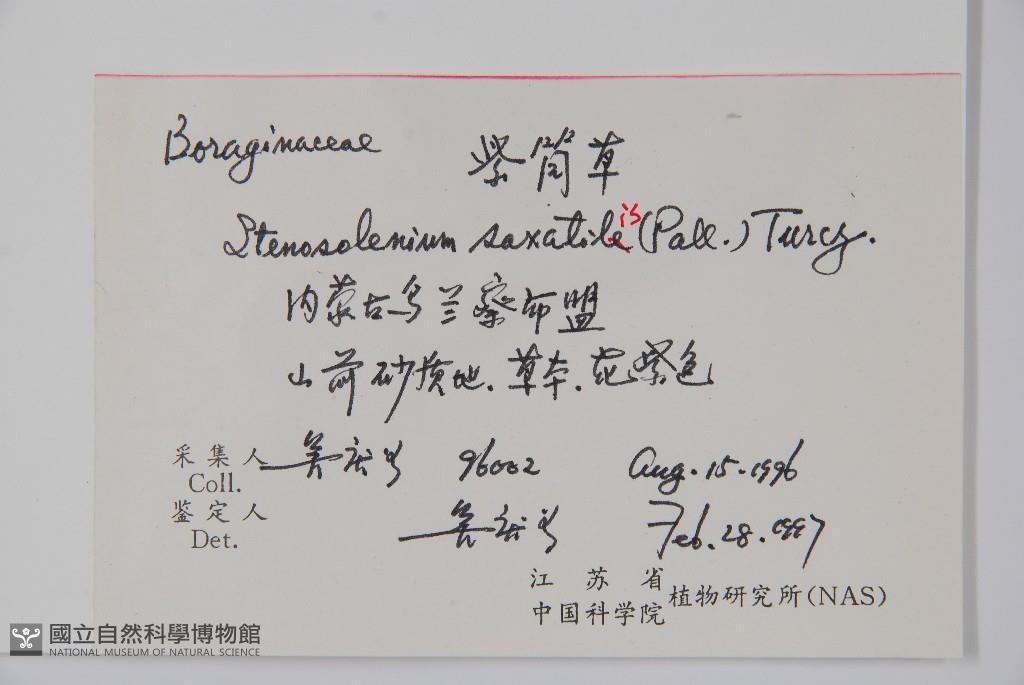 Boraginaceae 紫筒草
Stenosolenium saxatile is (Pall.) Turcz.
内蒙古乌兰察布盟
山前砂质地.草本.花紫色
采集人 96002 Aug.15.1996
Coll.
鉴定人 Feb.28.1997
Det.
江苏省
中国科学院 植物研究所(NAS)
國立自然科學博物館
NATIONAL MUSEUM OF NATURAL SCIENCE